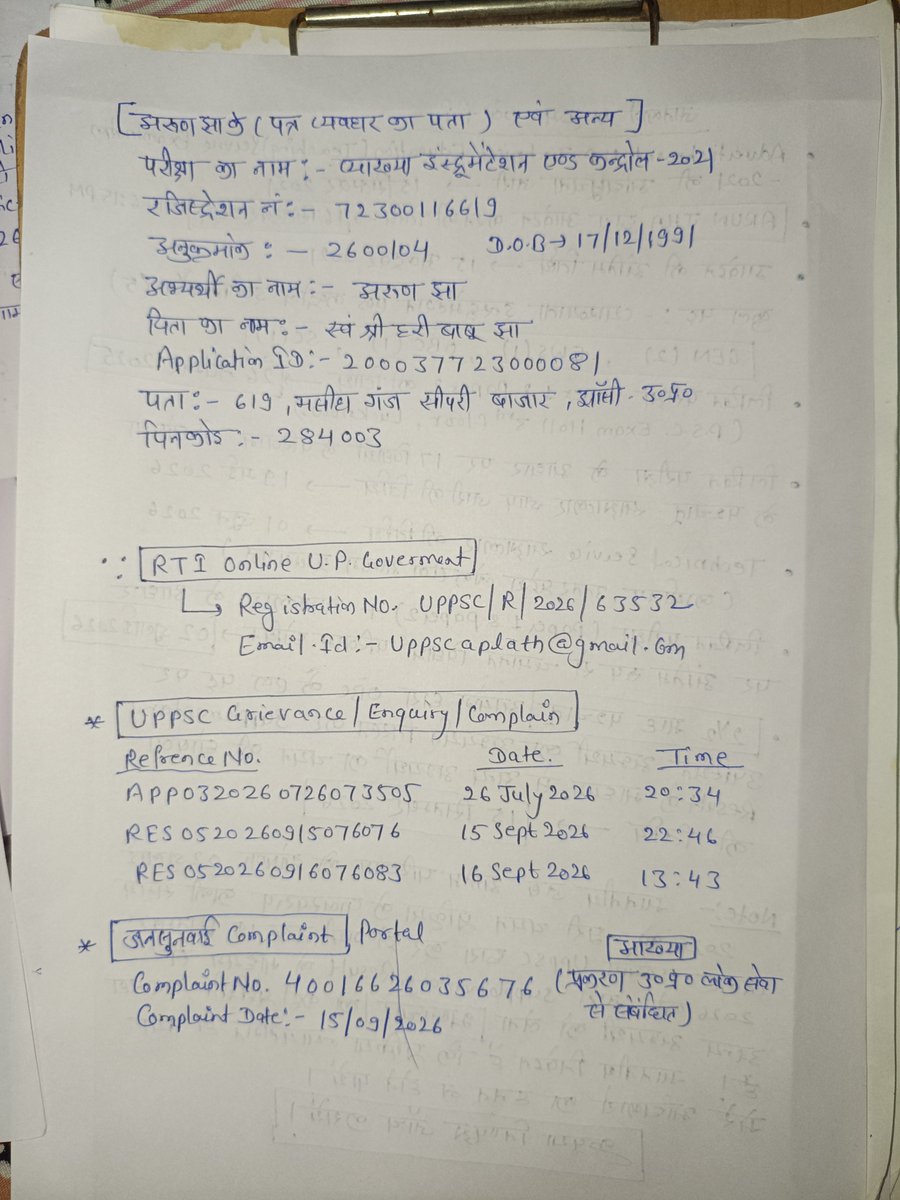 [अरुण झा के (पत्र व्यवहार का पता) एवं अन्य]
परीक्षा का नाम :- व्याख्या इंस्ट्रूमेंटेशन एण्ड कन्ट्रोल-2021
रजिस्ट्रेशन नं :- 72300116619
अनुक्रमांक :- 2600104 D.O.B→ 17/12/1991
अभ्यर्थी का नाम :- अरुण झा
पिता का नाम :- स्वं श्री हरी बाबू झा
Application ID:- 200037723000081
पता :- 619, मसीहा गंज सीपरी बाजार, झॉसी उ०प्र०
पिनकोड :- 284003
RTI Online U.P. Goverment
↳ Registration No. UPPSC/R/2026/63532
Email.Id:- Uppscaplath@gmail.com
* UPPSC Grievance/Enquiry/Complain
Refrence No. Date. Time
APP0320260726073505 26 July 2026 20:34
RES0520260915076076 15 Sept 2026 22:46
RES0520260916076083 16 Sept 2026 13:43
* जनसुनवाई Complaint Portal
Complaint No. 40016626035676 (प्रकरण उ०प्र० लोक सेवा
Complaint Date:- 15/09/2026 से संबंधित)